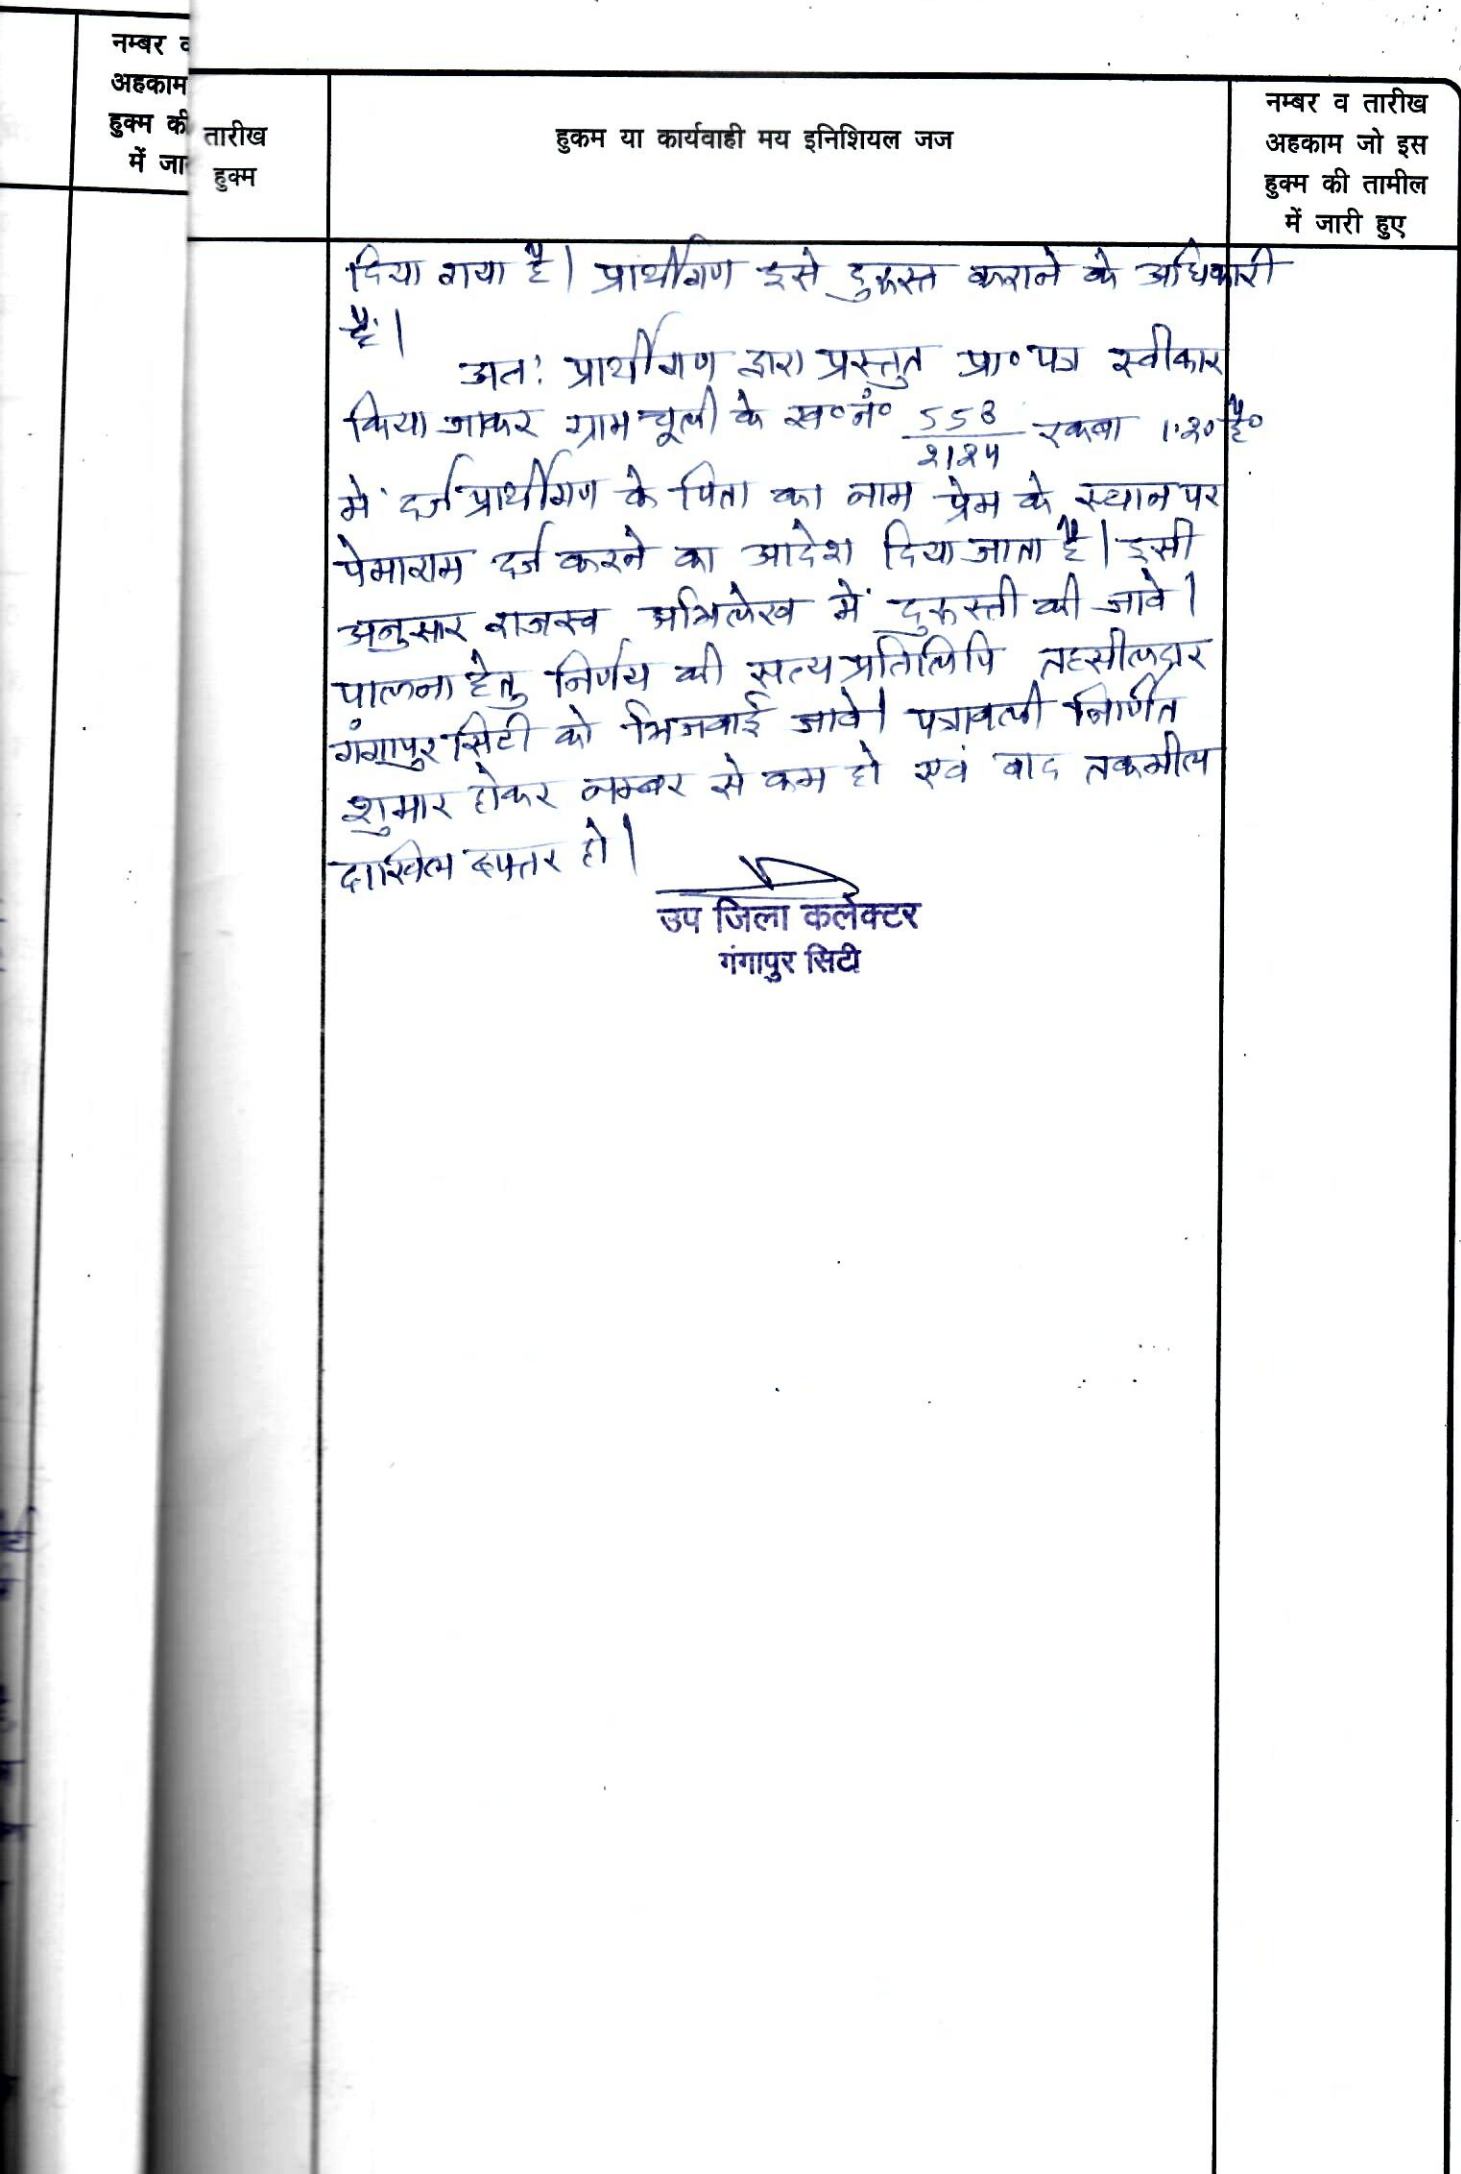 नम्बर व
अहकाम
हुक्म की
में जा
तारीख
हुक्म
हुकम या कार्यवाही मय इनिशियल जज
नम्बर व तारीख
अहकाम जो इस
हुक्म की तामील
में जारी हुए
दिया गया है। प्रार्थीगण इसे दुरूस्त कराने के अधिकारी
हैं।
अतः प्रार्थीगण द्वारा प्रस्तुत प्रा० पत्र स्वीकार
किया जाकर ग्राम चूली के ख०नं० 558/२१२५ रकबा १.२० है०
में दर्ज प्रार्थीगण के पिता का नाम प्रेम के स्थान पर
पेमाराम दर्ज करने का आदेश दिया जाता है। इसी
अनुसार राजस्व अभिलेख में दुरूस्ती की जावे।
पालना हेतु निर्णय की सत्य प्रतिलिपि तहसीलदार
गंगापुर सिटी को भिजवाई जावे। पत्रावली निर्णित
शुमार होकर नम्बर से कम हो एवं बाद तकमील
दाखिल दफ्तर हो।
उप जिला कलेक्टर
गंगापुर सिटी